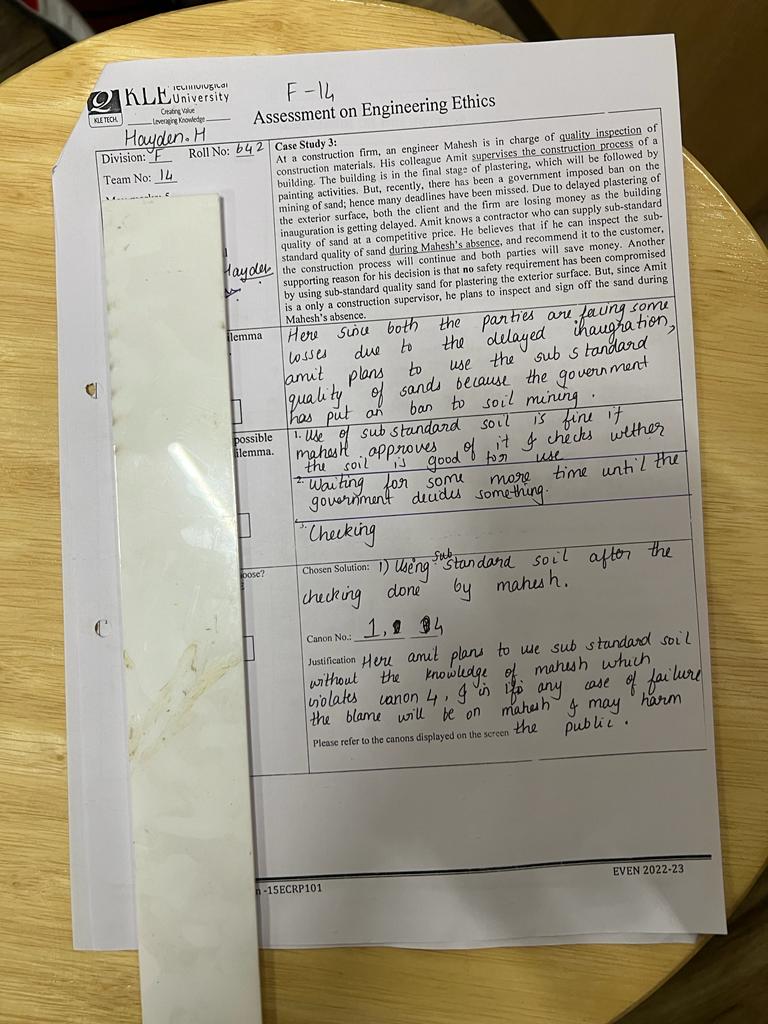 F-14
KLE Technological
University
Creating Value
Leveraging Knowledge
KLE TECH.
Assessment on Engineering Ethics
Hayden.H
Division: F Roll No: 642
Team No: 14
Hayden
Case Study 3:
At a construction firm, an engineer Mahesh is in charge of quality inspection of
construction materials. His colleague Amit supervises the construction process of a
building. The building is in the final stage of plastering, which will be followed by
painting activities. But, recently, there has been a government imposed ban on the
mining of sand; hence many deadlines have been missed. Due to delayed plastering of
the exterior surface, both the client and the firm are losing money as the building
inauguration is getting delayed. Amit knows a contractor who can supply sub-standard
quality of sand at a competitive price. He believes that if he can inspect the sub-
standard quality of sand during Mahesh's absence, and recommend it to the customer,
the construction process will continue and both parties will save money. Another
supporting reason for his decision is that no safety requirement has been compromised
by using sub-standard quality sand for plastering the exterior surface. But, since Amit
is only a construction supervisor, he plans to inspect and sign off the sand during
Mahesh's absence.
ilemma
Here since both the parties are facing some
losses due to the delayed inaugration,
amit plans to use the sub standard
quality of sands because the government
has put an ban to soil mining.
possible
ilemma.
1. Use of sub standard soil is fine if
mahesh approves of it & checks wether
the soil is good for use
2. Waiting for some more time until the
government decides something.
3. Checking
oose?
Chosen Solution: 1) Using sub standard soil after the
checking done by mahesh.
Canon No.: 1, 4
Justification Here amit plans to use sub standard soil
without the knowledge of mahesh which
violates canon 4, & in any case of failure
the blame will be on mahesh & may harm
the public.
Please refer to the canons displayed on the screen
n -15ECRP101
EVEN 2022-23